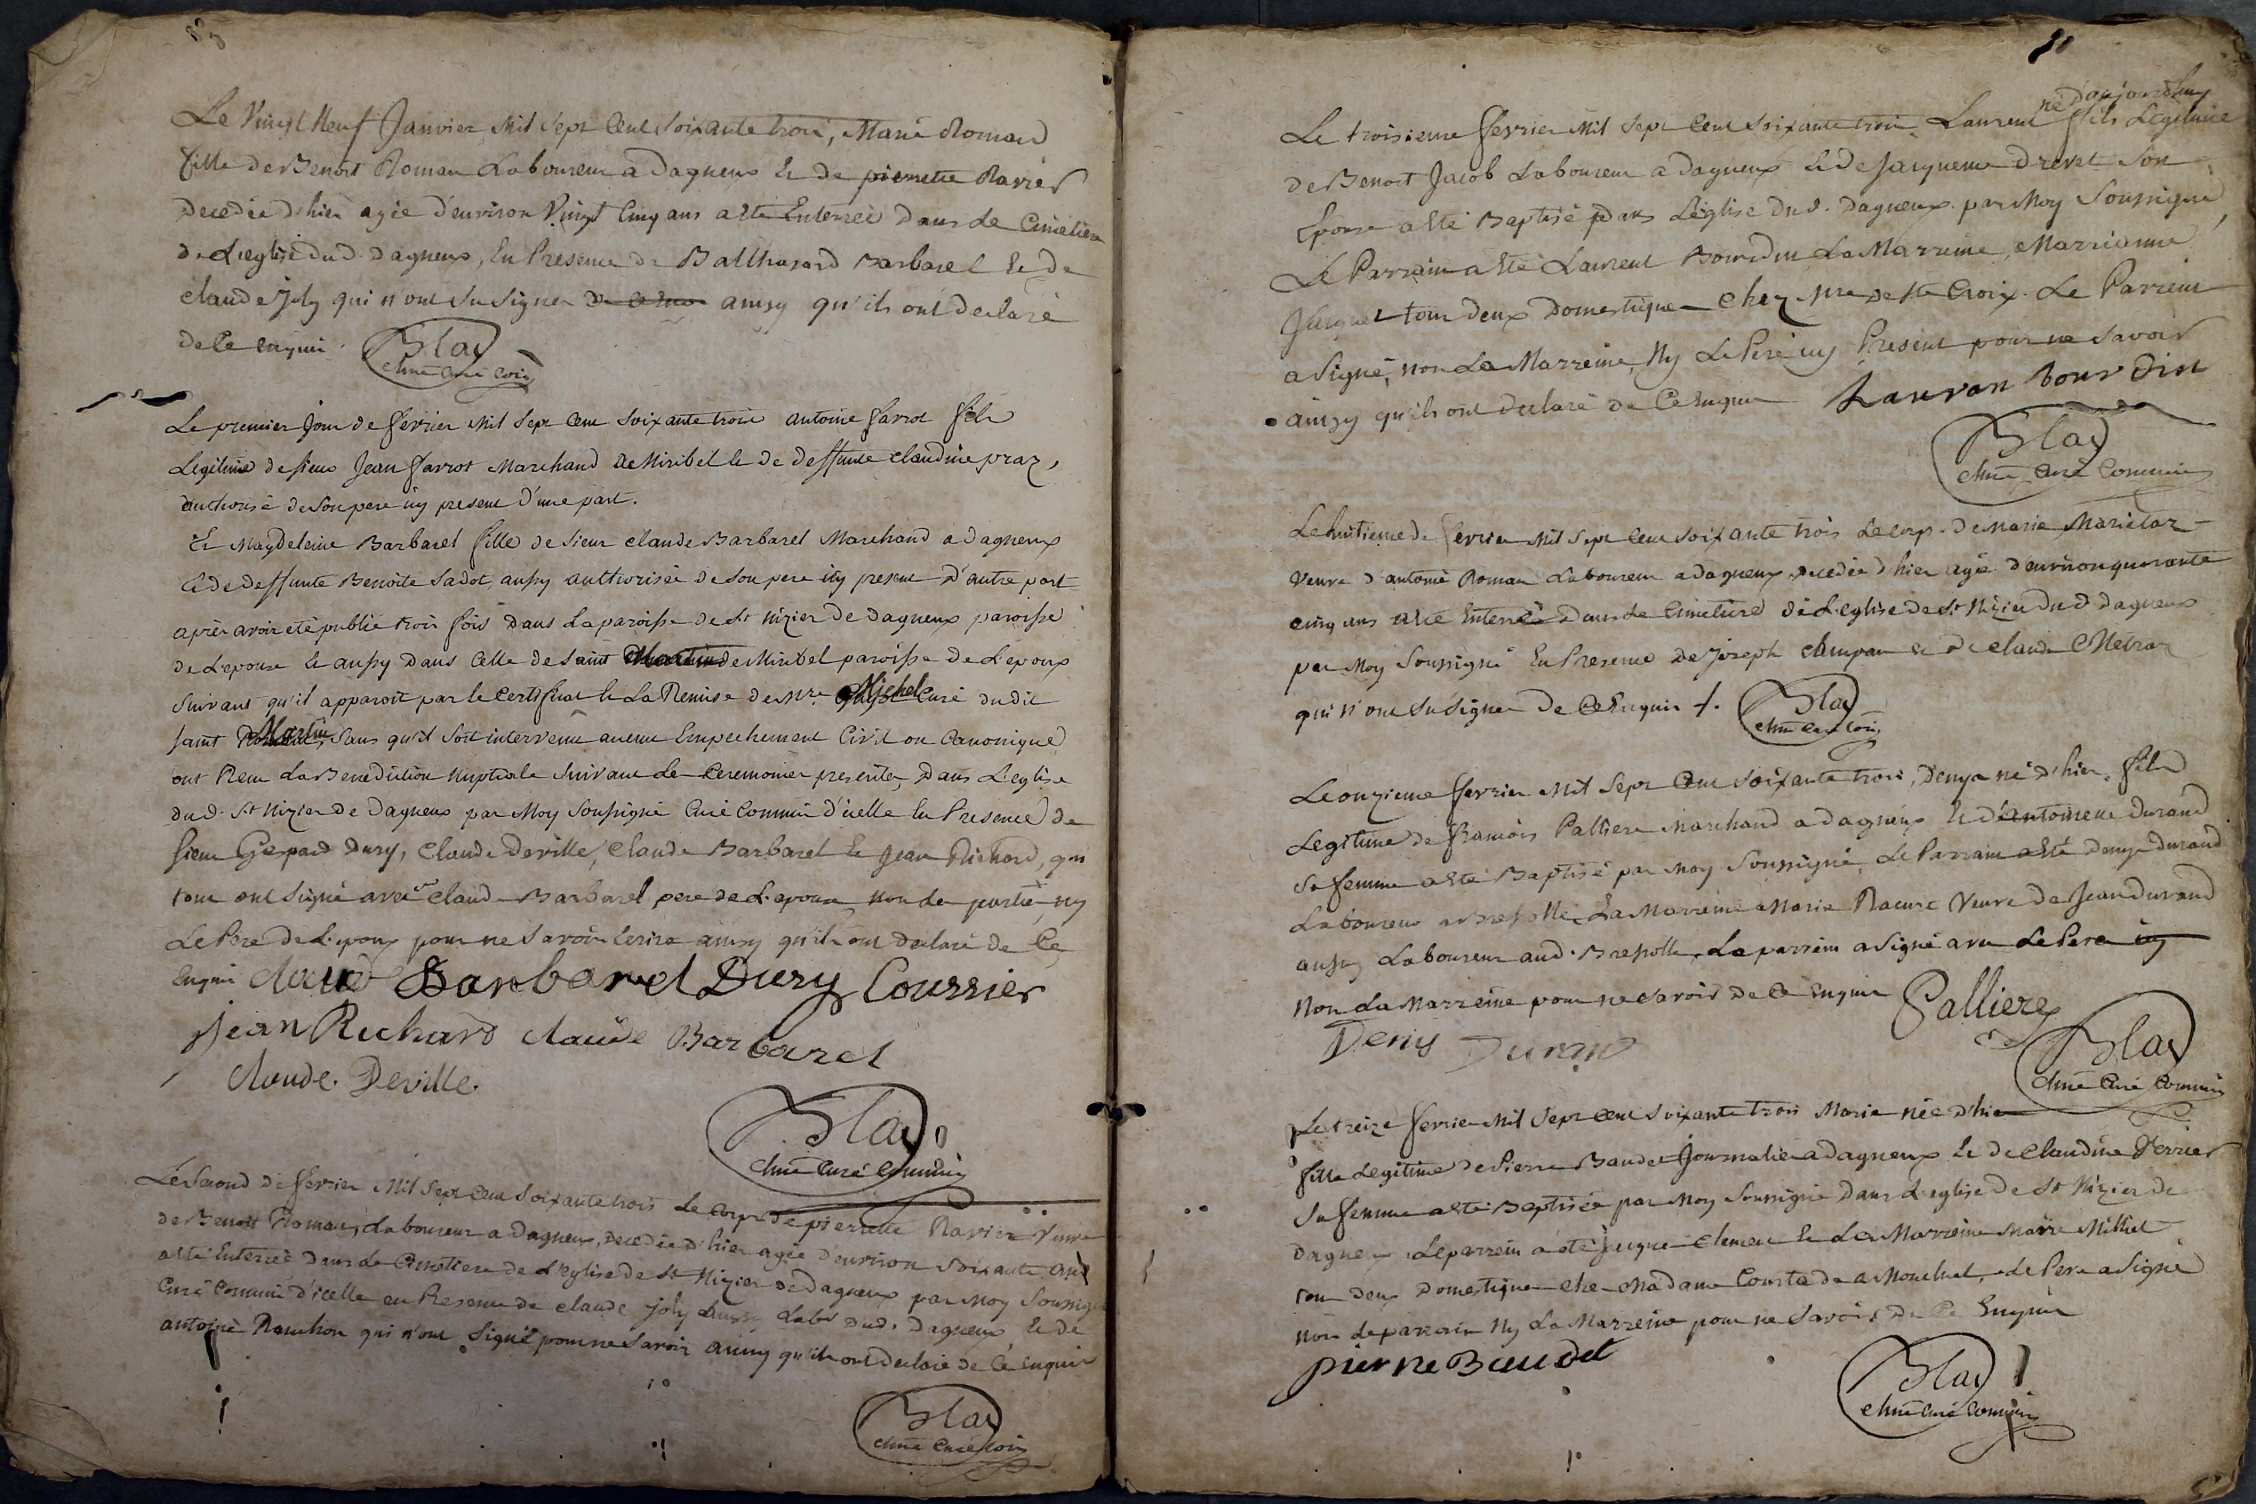 Le Vingt Neuf Janvier Mil Sept Cent Soixante trois, Marie Roman
fille de Benoit Roman Laboureur a Dagneux et de pierrette Ravier
Decedée d'hier agée d'environ Vingt Cinq ans a été Enterrée Dans Le Cimetiere
de L'eglise dud. Dagneux, En Presence de Balthazard Barbarel et de
claude Joly qui n'ont Su Signer ainsy qu'ils ont declaré
de Ce enquis.
Blay
Curé Com
Le premier Jour de fevrier Mil Sept Cent Soixante trois antoine farrot fils
Legitime de sieur Jean farrot Marchand de Miribel et de deffunte claudine praz,
authorisé de Son pere icy present d'une part.
Et Magdeleine Barbarel fille de Sieur claude Barbarel Marchand a dagneux
et de deffunte Benoite Sadot, aussy authorisée de Son pere icy present d'autre part
aprés avoir été publié trois fois Dans La paroisse de St nizier de Dagneux paroisse
de L'epouse et aussy dans Celle de Saint Martin de Miribel paroisse de L'epoux
Suivant qu'il apparoit par le Certificat et La Remise de Mre Michel Curé dudit
saint Martin, Sans qu'il Soit intervenu aucun Empechement Civil ou Canonique
ont Recu La Benediction nuptiale Suivant Les Ceremonies prescrites, Dans L'eglise
dud. St Nizier de Dagneux par Moy Soussigné Curé Commis d'icelle En Presence de
sieur Gaspard Dury, Claude Deville, Claude Barbarel et Jean Richard, qui
tous ont Signé avec claude Barbarel pere de L'epouse, non les parties, ny
Le Pere de L'epoux pour ne Savoir Ecrire ainsy qu'ils ont Declaré de Ce
Enquis Claude Barbarel Dury Courrier
Jean Richard claude Barbarel
Claude. Deville.
Blay
Curé Commis
Le Second de fevrier Mil Sept Cent Soixante trois Le Corps de pierrette Ravier Veuve
de Benoit Roman, Laboureur a Dagneux, Decedée d'hier agée d'environ Soixante ans
a été Enterrée Dans Le Cimetiere de L'eglise de St Nizier de Dagneux par Moy Soussigné
Curé Commis d'icelle en Presence de Claude Joly Labr dud. Dagneux et de
antoine Ranchon qui n'ont Signé pour ne Savoir ainsy qu'ils ont Declaré de Ce enquis
Blay
Curé Com
né D'aujourdhuy
Le troisieme fevrier Mil Sept Cent Soixante trois Laurent fils Legitime
de Benoit Jacob Laboureur a dagneux et de Jacqueme Drevet Son
Epouse a été Baptisé Dans L'église Dud. Dagneux par Moy Soussigné,
Le Parrain a été Laurent Bourdin La Marreine, Marrianne
Jacquet tous deux Domestiques Chez Mre De Ste Croix. Le Parrein
a Signé, non La Marreine, Ny Le Pere icy Present pour ne Savoir
ainsy qu'ils ont declaré de Ce Enquis Lauran Bourdin
Blay
Curé Commis
Le huitieme de fevrier Mil Sept Cent Soixante trois Le corps de Marie Marietaz
Veuve d'antoine Roman Laboureur a dagneux, Decedée d'hier agée d'environ quarante
cinq ans a été Enterrée Dans Le Cimetiere de L'eglise de St Nizier Dud Dagneux
par Moy Soussigné En Presence de Joseph et de Claude
qui n'ont Su Signer De Ce Enquis
Blay
Curé Com
Le onzieme fevrier Mil Sept Cent Soixante trois, Denys né D'hier, fils
Legitime de francois Palliere Marchand a dagneux Et d'antoinette Durand
Sa femme a été Baptisé par Moy Soussigné, Le Parrain a été Denys Durand
Laboureur a Bressolle, La Marreine Marie Racurt Veuve de Jean Durand
aussy Laboureur aud. Bressolle, Le parrein a Signé avec Le Pere icy
Non La Marreine pour ne Savoir de Ce Enquis Palliere
Denis Durand
Blay
Curé Commis
Le treize fevrier Mil Sept Cent Soixante trois Marie née d'hier
fille Legitime de Pierre Baudet Journalier a dagneux Et de Claudine Perrier
Sa femme a été Baptisée par Moy Soussigné Dans L'eglise de St Nizier de
Dagneux, Le parrein a été Jacque Clement Et La Marreine Marie Milliet
tous deux Domestiques Chez Madame Constade a Montluel, Le Pere a Signé
non Le parrain Ny La Marreine pour ne Savoir de Ce Enquis
pierre Baudet
Blay
Curé Commis